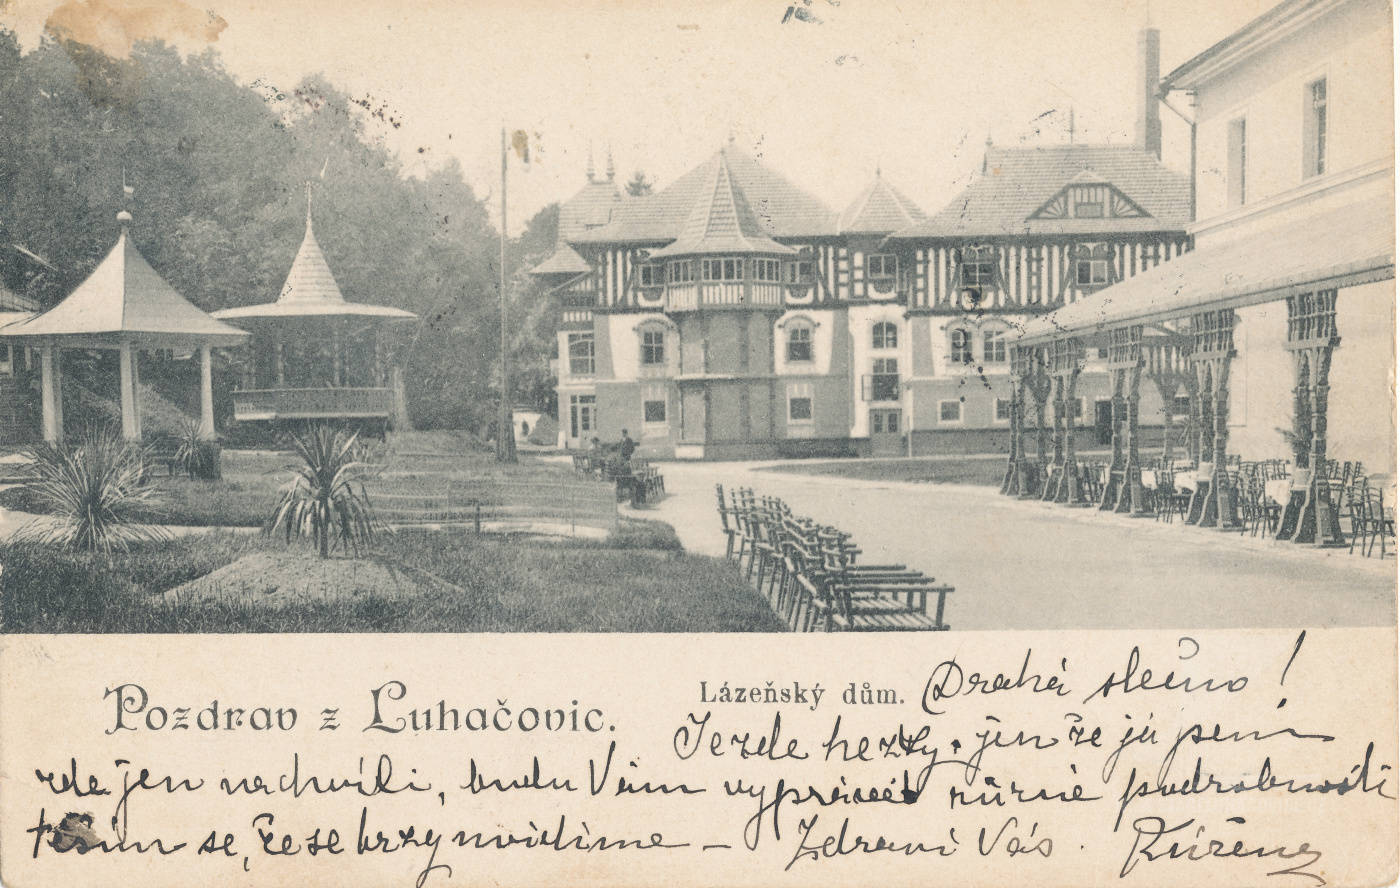 Pozdrav z Luhačovic.
Lázeňský dům.
Drahá slečno!
Je zde hezky, jen že já jsem
zde jen na chvíli, budu Vám vyprávět různé podrobnosti
těším se, že se brzy uvidíme – Zdraví Vás